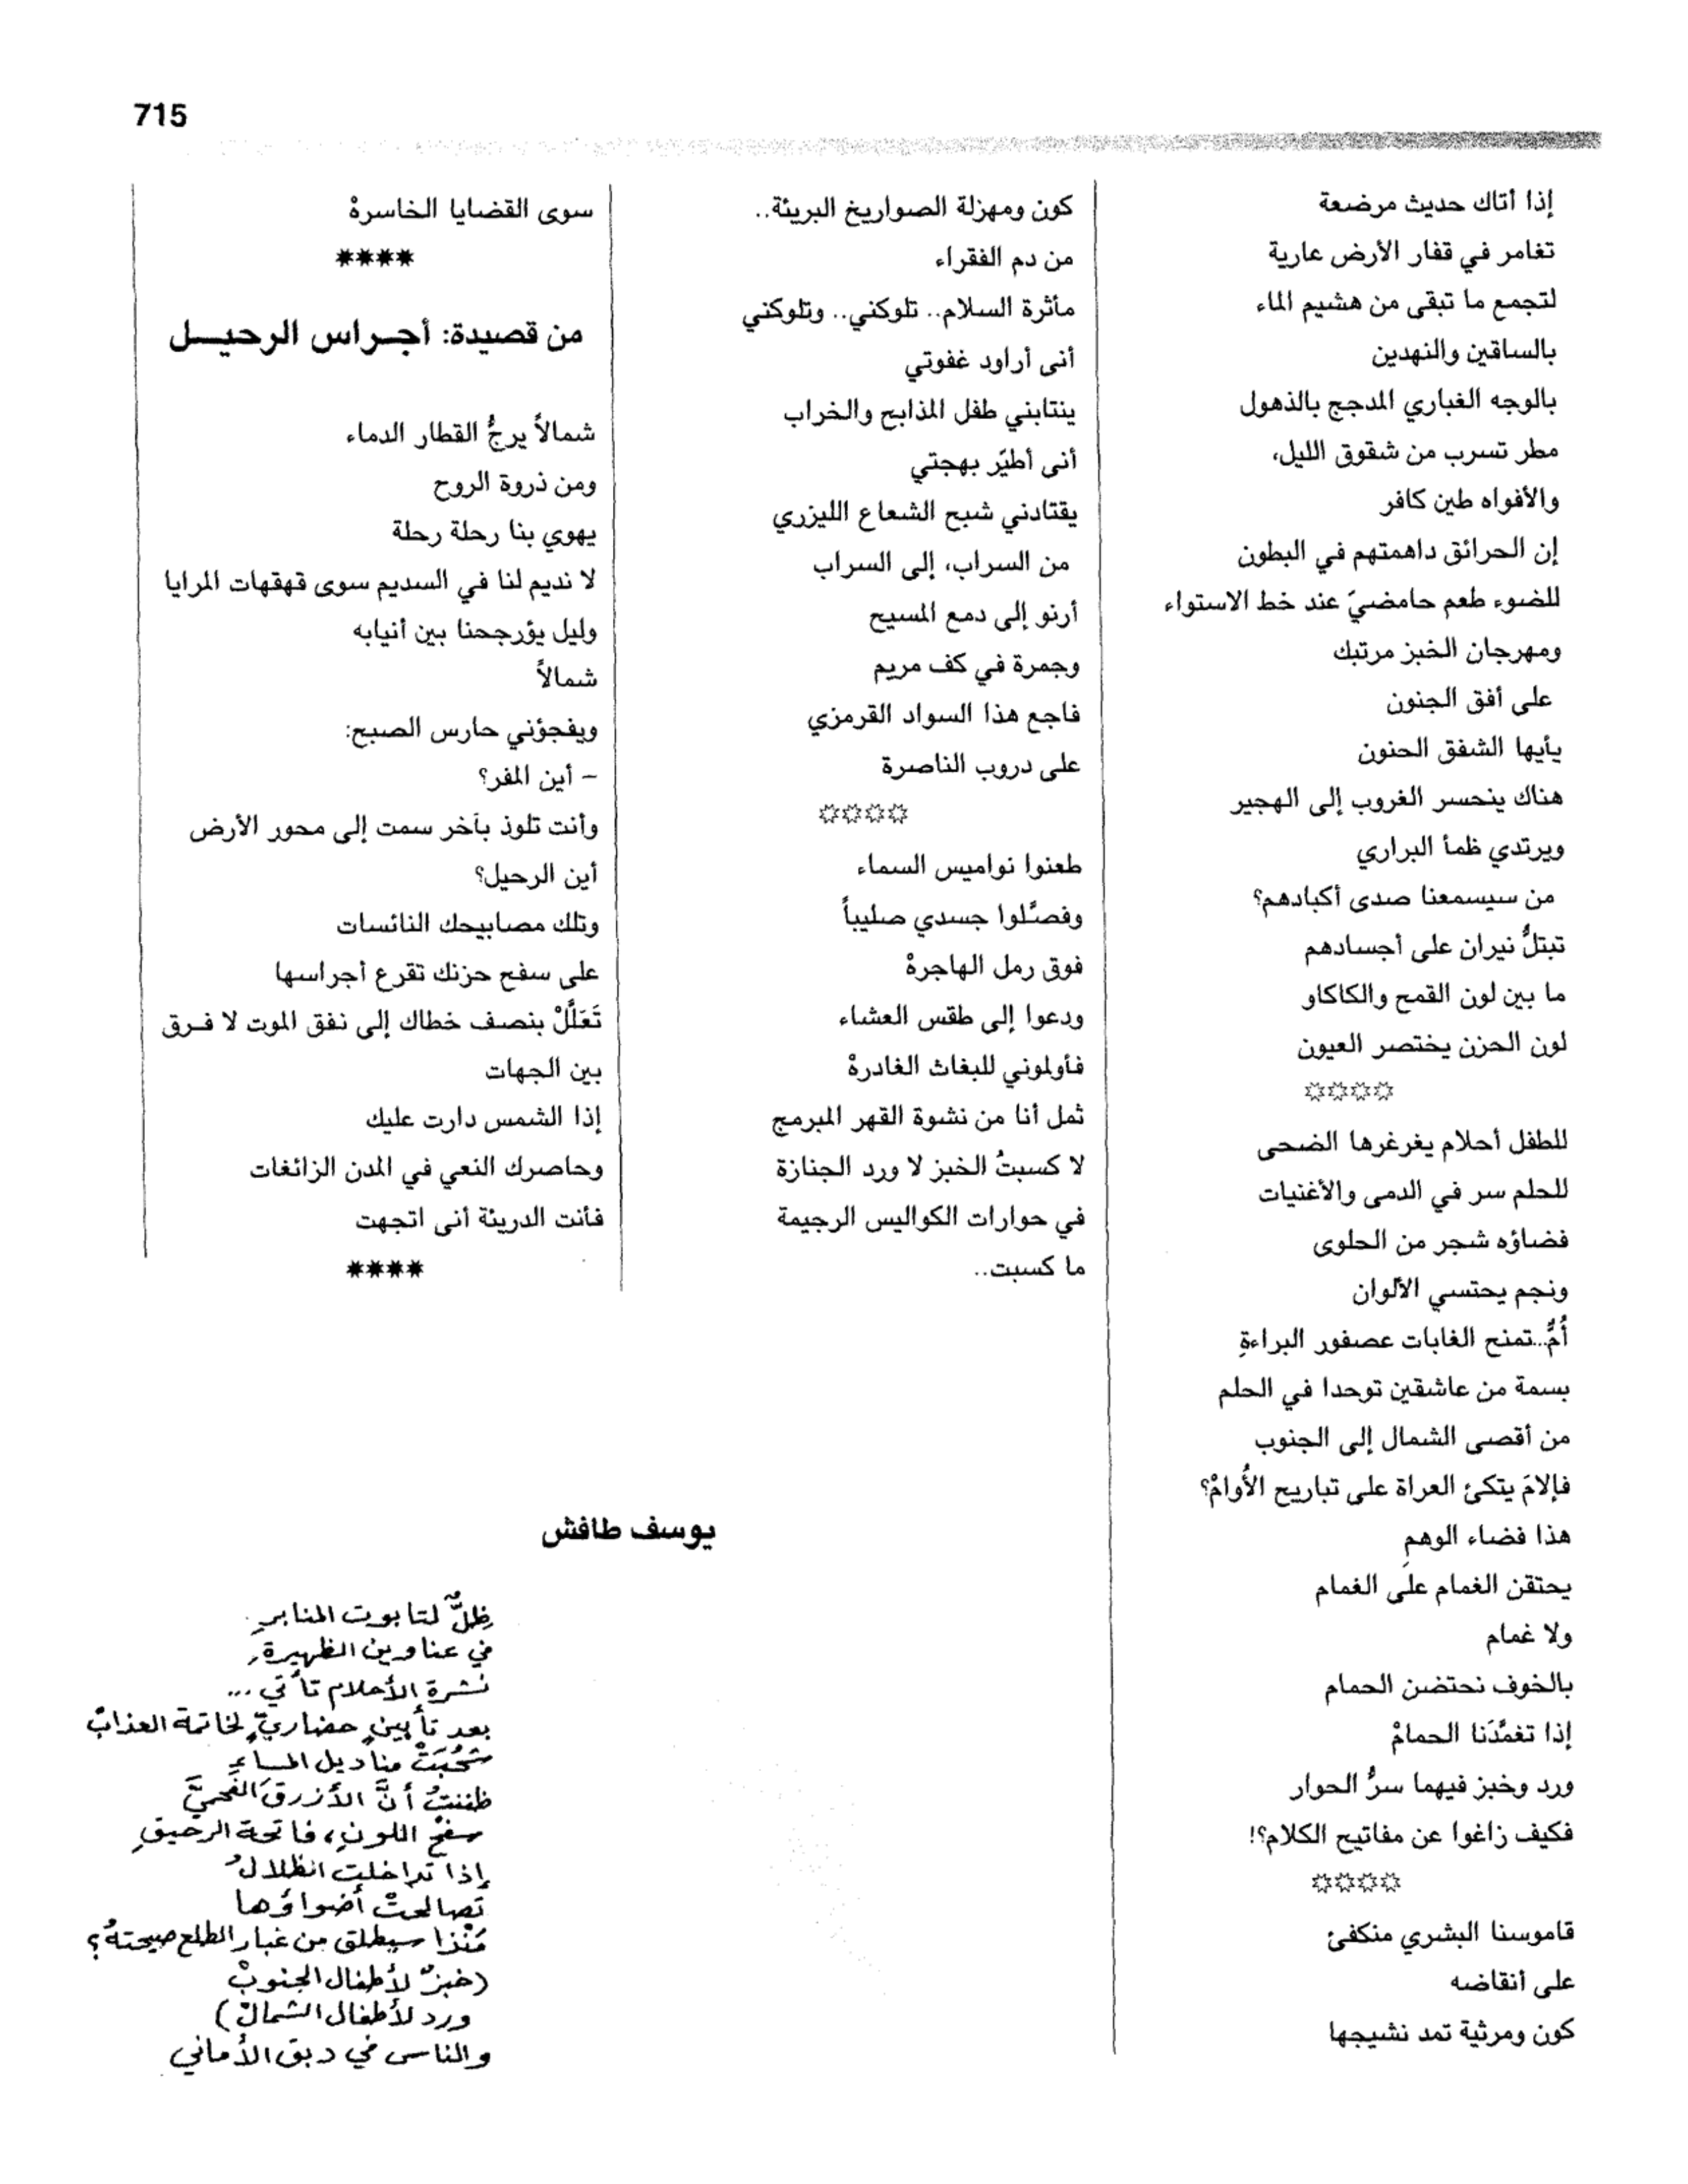 715
إذا أتاك حديث مرضعة
تغامر في قفار الأرض عارية
لتجمع ما تبقى من هشيم الماء
بالساقين والنهدين
بالوجه الغباري المدجج بالذهول
مطر تسرب من شقوق الليل،
والأفواه طين كافر
إن الحرائق داهمتهم في البطون
للضوء طعم حامضيّ عند خط الاستواء
ومهرجان الخبز مرتبك
على أفق الجنون
يأيها الشفق الحنون
هناك ينحسر الغروب إلى الهجير
ويرتدي ظمأ البراري
من سيسمعنا صدى أكبادهم؟
تبتلُّ نيران على أجسادهم
ما بين لون القمح والكاكاو
لون الحزن يختصر العيون
☼☼☼☼
للطفل أحلام يغرغرها الضحى
للحلم سر في الدمى والأغنيات
فضاؤه شجر من الحلوى
ونجم يحتسي الألوان
أُمٌّ..تمنح الغابات عصفور البراءةِ
بسمة من عاشقين توحدا في الحلم
من أقصى الشمال إلى الجنوب
فإلامَ يتكئ العراة على تباريح الأُوامْ؟
هذا فضاء الوهمِ
يحتقن الغمام على الغمام
ولا غمام
بالخوف نحتضن الحمام
إذا تغمَّدَنا الحمامْ
ورد وخبز فيهما سرُّ الحوار
فكيف زاغوا عن مفاتيح الكلام؟!
☼☼☼☼
قاموسنا البشري منكفئ
على أنقاضه
كون ومرثية تمد نشيجها
كون ومهزلة الصواريخ البريئة..
من دم الفقراء
مأثرة السلام.. تلوكني.. وتلوكني
أنى أراود غفوتي
ينتابني طفل المذابح والخراب
أنى أطيّر بهجتي
يقتادني شبح الشعاع الليزري
من السراب، إلى السراب
أرنو إلى دمع المسيح
وجمرة في كف مريم
فاجع هذا السواد القرمزي
على دروب الناصرة
☼☼☼☼
طعنوا نواميس السماء
وفصَّلوا جسدي صليباً
فوق رمل الهاجرهْ
ودعوا إلى طقس العشاء
فأولموني للبغاث الغادرهْ
ثمل أنا من نشوة القهر المبرمج
لا كسبتُ الخبز لا ورد الجنازة
في حوارات الكواليس الرجيمة
ما كسبت..
سوى القضايا الخاسرهْ
****
من قصيدة: أجـراس الرحيـل
شمالاً يرجُّ القطار الدماء
ومن ذروة الروح
يهوي بنا رحلة رحلة
لا نديم لنا في السديم سوى قهقهات المرايا
وليل يؤرجحنا بين أنيابه
شمالاً
ويفجؤني حارس الصبح:
– أين المفر؟
وأنت تلوذ بآخر سمت إلى محور الأرض
أين الرحيل؟
وتلك مصابيحك النائسات
على سفح حزنك تقرع أجراسها
تَعَلَّلْ بنصف خطاك إلى نفق الموت لا فـرق
بين الجهات
إذا الشمس دارت عليك
وحاصرك النعي في المدن الزائغات
فأنت الدريئة أنى اتجهت
****
يوسف طافش
ظِلٌّ لتابوت المنابرِ
في عناوين الظهيرةِ
نشرة الأحلام تأتي ...
بعد تأبينٍ حضاريٍّ لخاتمة العذابْ
شَحُبَتْ مناديل المساءِ
ظننتُ أنَّ الأزرقَ الفحميَّ
سفحُ اللونِ، فاتحة الرحيقِ
إذا تداخلت الظلالُ
تصالحتْ أضواؤها
مَنْذا سيطلق من غبار الطلع صيحتهُ؟
(خبزٌ لأطفال الجنوبْ
ورد لأطفال الشمالْ)
والناس في دبق الأماني